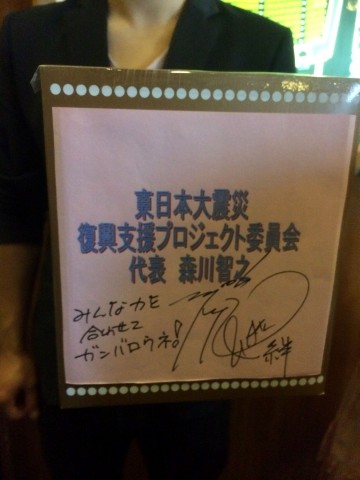 東日本大震災
復興支援プロジェクト委員会
代表 森川智之
みんな力を
合わせて
ガンバロウネ!
絆